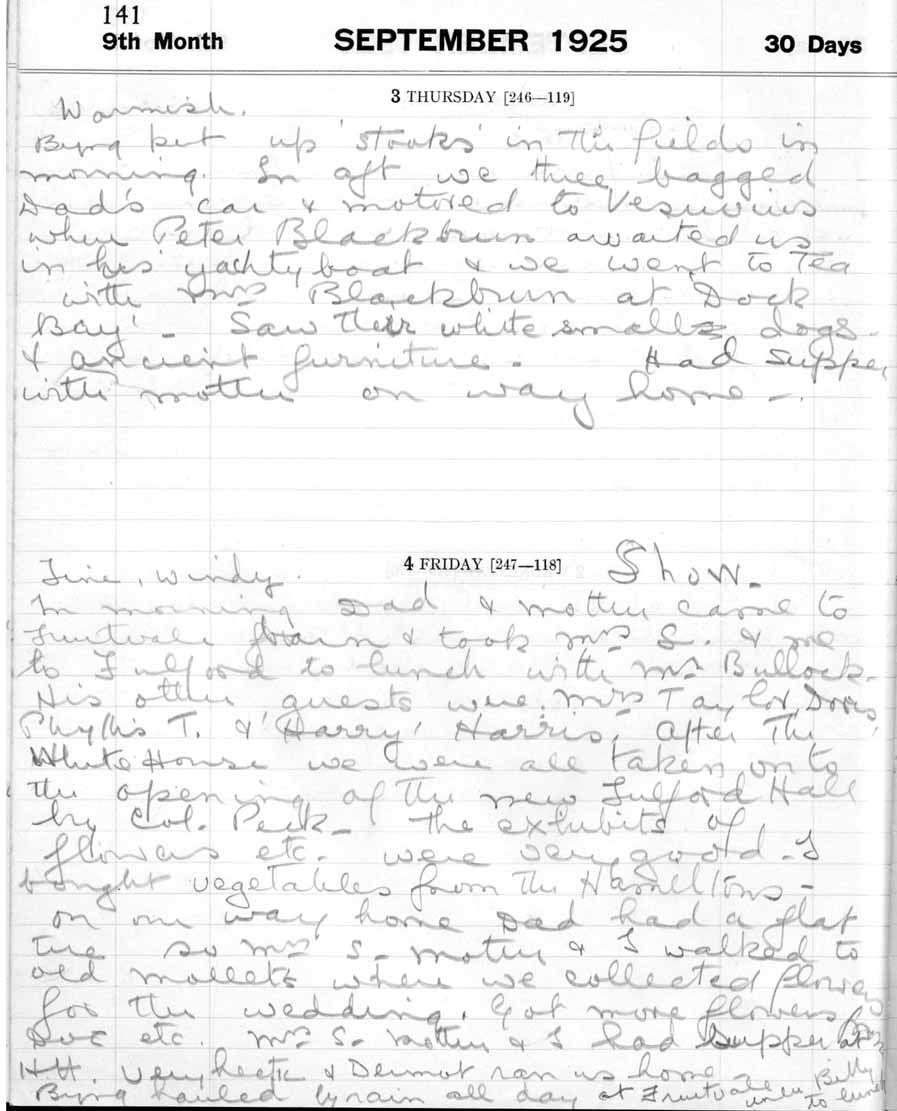 141
9th Month SEPTEMBER 1925 30 Days
3 THURSDAY [246—119]
Warmish.
Byng put up 'stooks' in the fields in
morning. In aft we three bagged
Dad's car & motored to Vesuvius
where Peter Blackburn awaited us
in his yachty boat & we went to Tea
with Mrs Blackburn at Dock
Bay'- Saw their white small dogs.
& ancient furniture - Had supper
with mother on way home -.
4 FRIDAY [247—118] Show.
Fine, windy.
In morning Dad & mother came to
Fruitvale & took Mrs S. & me
to Fulford to lunch with Mr Bullock.
His other guests were Mrs Taylor, Doris,
Phyllis T. & 'Harry' Harris, After The
White House we were all taken on to
the opening of the new Fulford Hall
by Col. Peck - the exhibits of
flowers etc. were very good - I
bought vegetables from The Hamiltons -
on our way home Dad had a flat
tire so Mrs S - mother & I walked to
old mollets where we collected flowers
for the wedding. Got more flowers
etc. Mrs S - mother & I had supper at
HH. Very hectic & Dermot ran us home -
Byng hauled all day at Fruitvale Billy to lunch